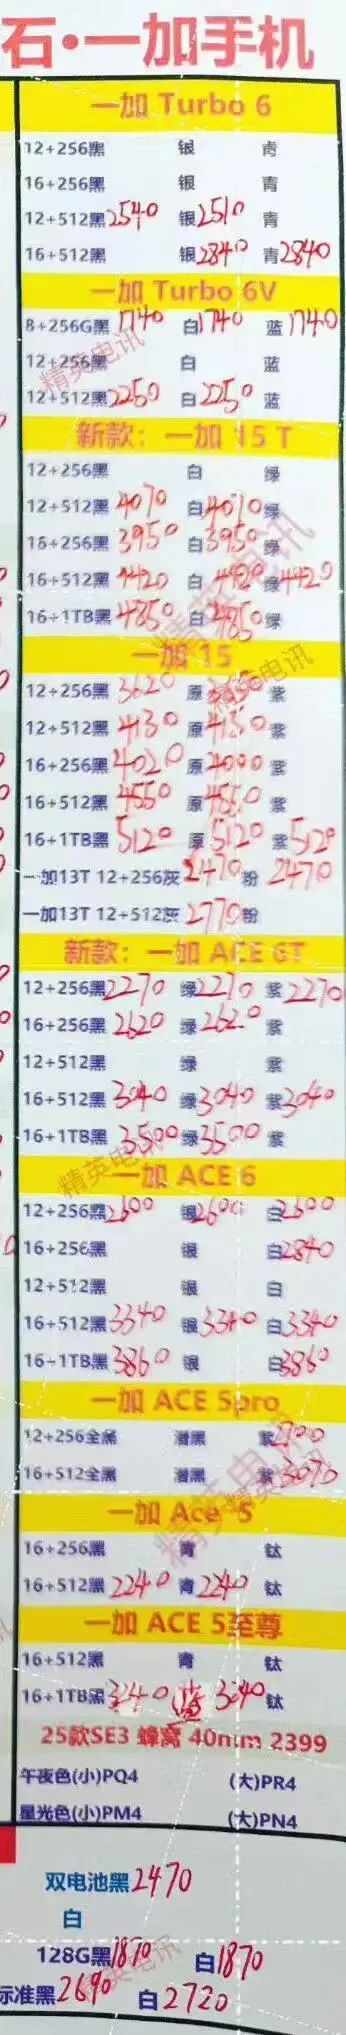 石·一加手机
一加 Turbo 6
12+256黑 银 青
16+256黑 银 青
12+512黑2540 银2510 青
16+512黑 银2840 青2840
一加 Turbo 6V
8+256G黑1740 白1740 蓝1740
12+256黑 白 蓝
12+512黑2250 白2250 蓝
新款：一加 15 T
12+256黑 白 绿
12+512黑4070 白4070绿
16+256黑3950 白3950绿
16+512黑4420 白4420绿4420
16+1TB黑4850 白4850绿
一加 15
12+256黑3620 原 紫
12+512黑4130 原4130 紫
16+256黑4020 原4000 紫
16+512黑4550 原4550 紫
16+1TB黑5120 原5120 紫5120
一加13T 12+256灰2470粉 2470
一加13T 12+512灰2770粉
新款：一加 ACE 6T
12+256黑2270 绿2270紫2270
16+256黑2620 绿2620 紫
12+512黑 绿 紫
16+512黑3040 绿3040 紫3040
16+1TB黑3500绿3500紫
一加 ACE 6
12+256黑2600 银2600 白2600
16+256黑 银 白2840
12+512黑 银 白
16+512黑3340 银3340 白3340
16+1TB黑3860 银 白3860
一加 ACE 5pro
12+256全黑 潜黑 紫2700
16+512全黑 潜黑 紫3070
一加 Ace 5
16+256黑 青 钛
16+512黑2240 青2240 钛
一加 ACE 5至尊
16+512黑 青 钛
16+1TB黑3240 蓝 3240钛
25款SE3 蜂窝 40mm 2399
午夜色(小)PQ4 (大)PR4
星光色(小)PM4 (大)PN4
双电池黑2470
白
128G黑1870 白1870
标准黑2690 白2720
精英电讯
精英电讯
精英电讯
精英电讯
精英电讯
精英电讯
精英电讯